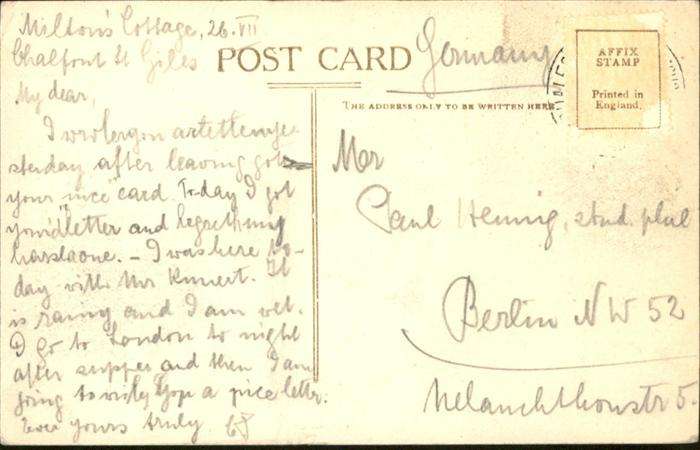 Milton's Cottage, 26. VII
Chalfont St Giles
POST CARD
Germany
AFFIX
STAMP
Printed in
England.
THE ADDRESS ONLY TO BE WRITTEN HERE
My dear,
I
sterday after leaving
your nice card. To-day I got
letter and regret my
. - I was here to-
day with Mr . It
is rainy and I am wet.
I go to London to night
after supper and then I am
going to you a nice letter.
Ever yours truly
Mr
Paul Hennig, stud. phil
Berlin NW 52
Melanchthonstr 5.